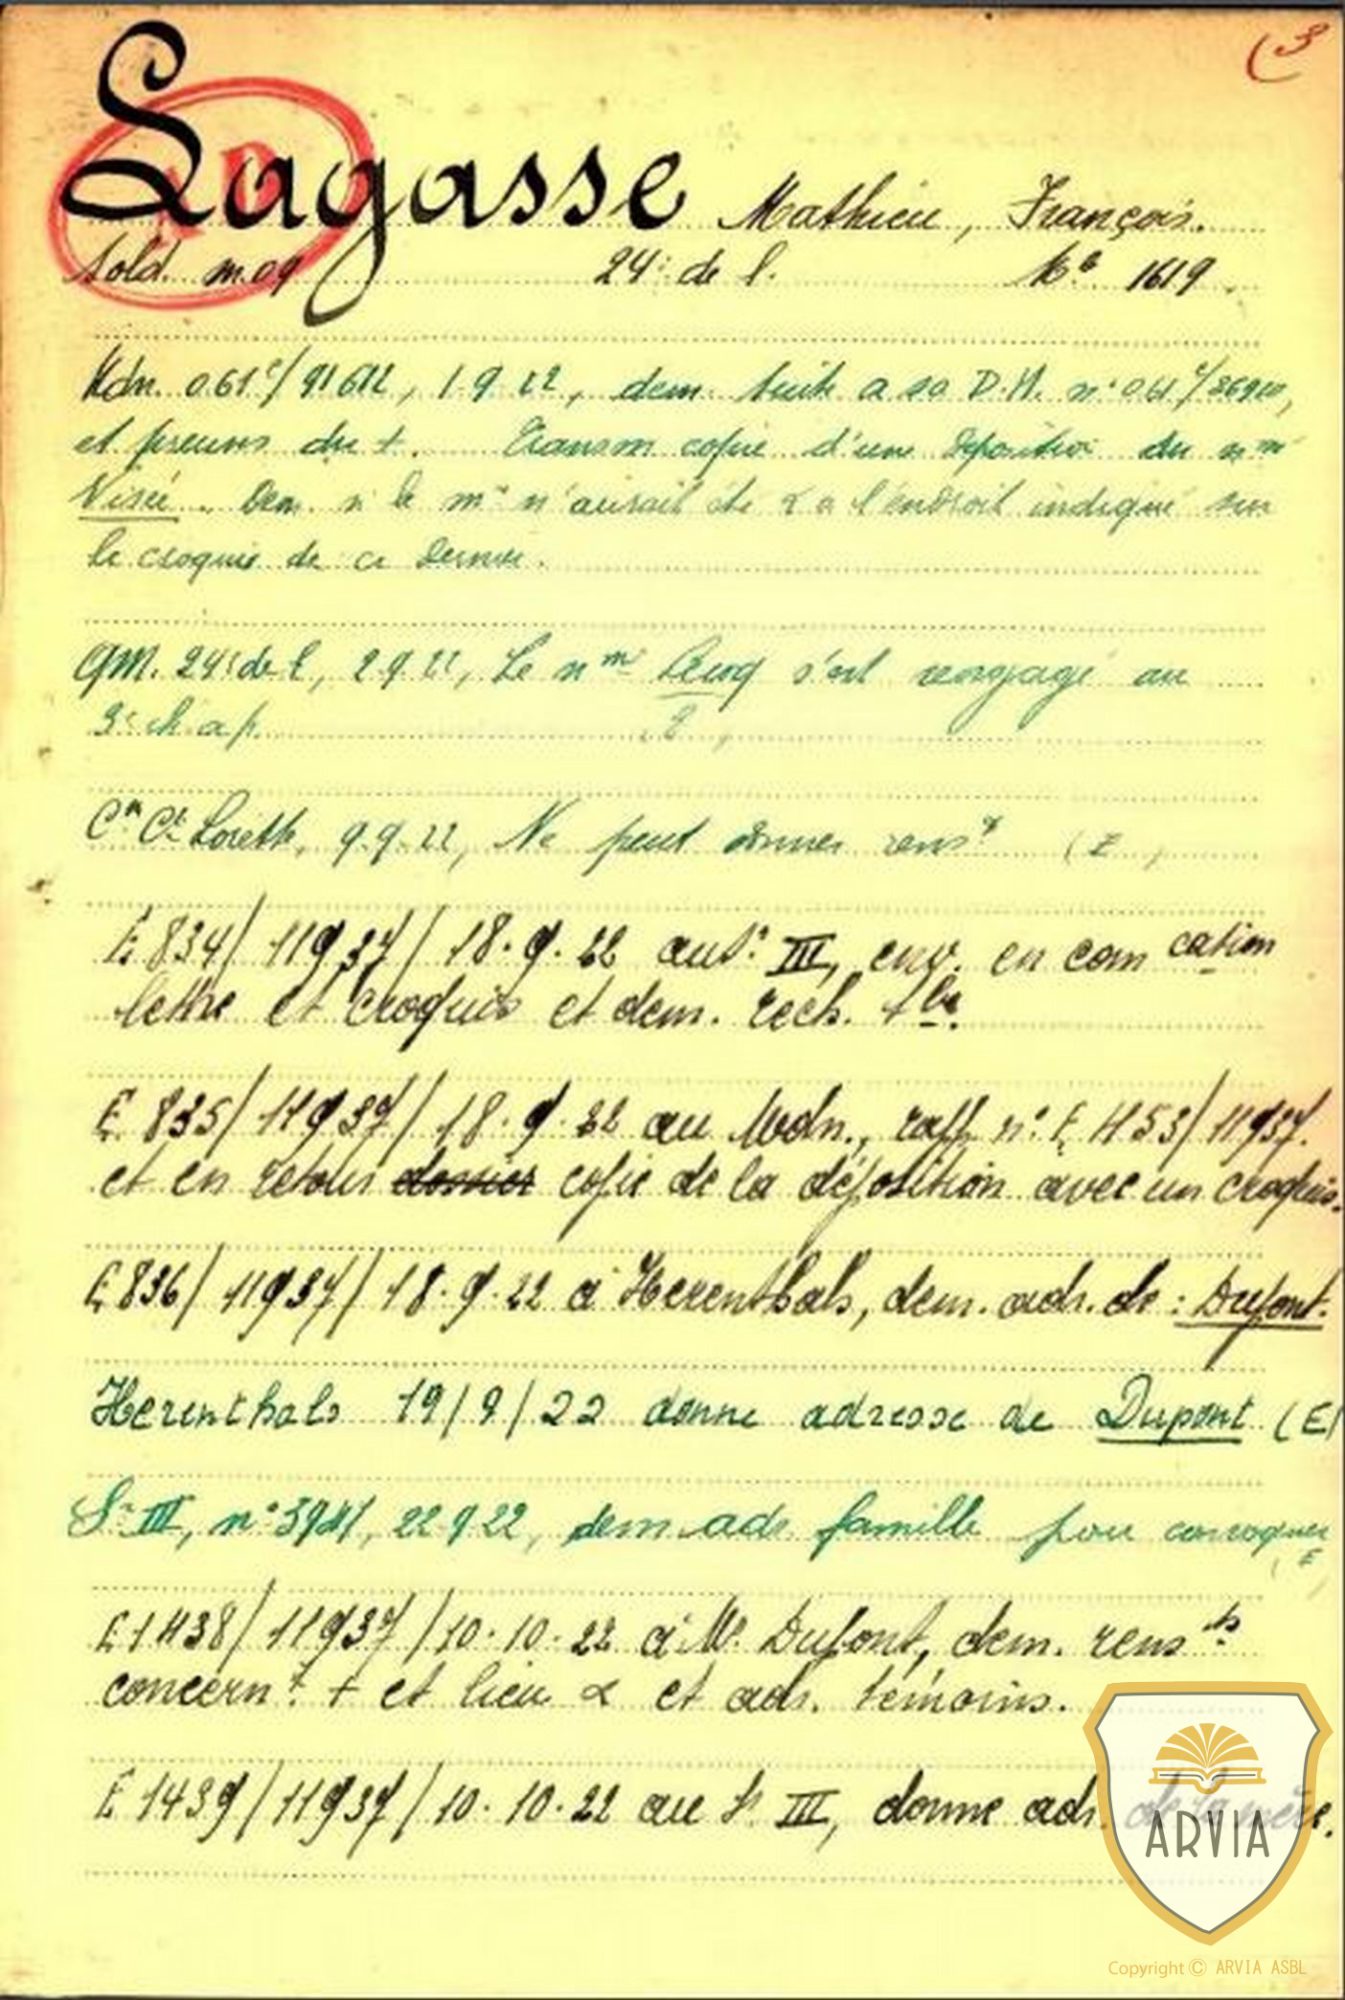 (3
Lagasse Mathieu, François.
Sold. m.09 24e de l. Me 1619
Mdn. 061e/91612, 1.9.22, dem. suite a sa D.N. n° 061e/
et preuves du +. Transm copie d'une déposition du nmé
Visée. Dem. si le mre n'aurait été α a l'endroit indiqué sur
le croquis de ce dernier.
QM. 24e de l, 2.9.22, Le nmé Lecog s'est rengagé au
3e ch. a p.
Cm Ct Lorette, 9.9.22, Ne peut donner renst (E)
E 834/ 11937/ 18.9.22 au St III, env. en com cation
lettre et croquis et dem. rech. tbe.
E 835/ 11937/ 18.9.22 au Mdn., rapp. n° E 1153/ 11937.
et en retour dossier copie de la déposition avec un croquis.
E 836/ 11937/ 18.9.22 à Herenthals, dem. adr. de : Dupont.
Herenthals 19/9/22 donne adresse de Dupont (E)
Sce III, n° 3941, 22 9 22, dem adr famille pour convoquer
(E)
E 1438/ 11937/ 10.10.22 à Mr. Dupont, dem. rensts
concernt + et lieu α et adr. témoins.
E 1439/ 11937/ 10.10.22 au St III, donne adr. de la mère.
ARVIA
Copyright © ARVIA ASBL